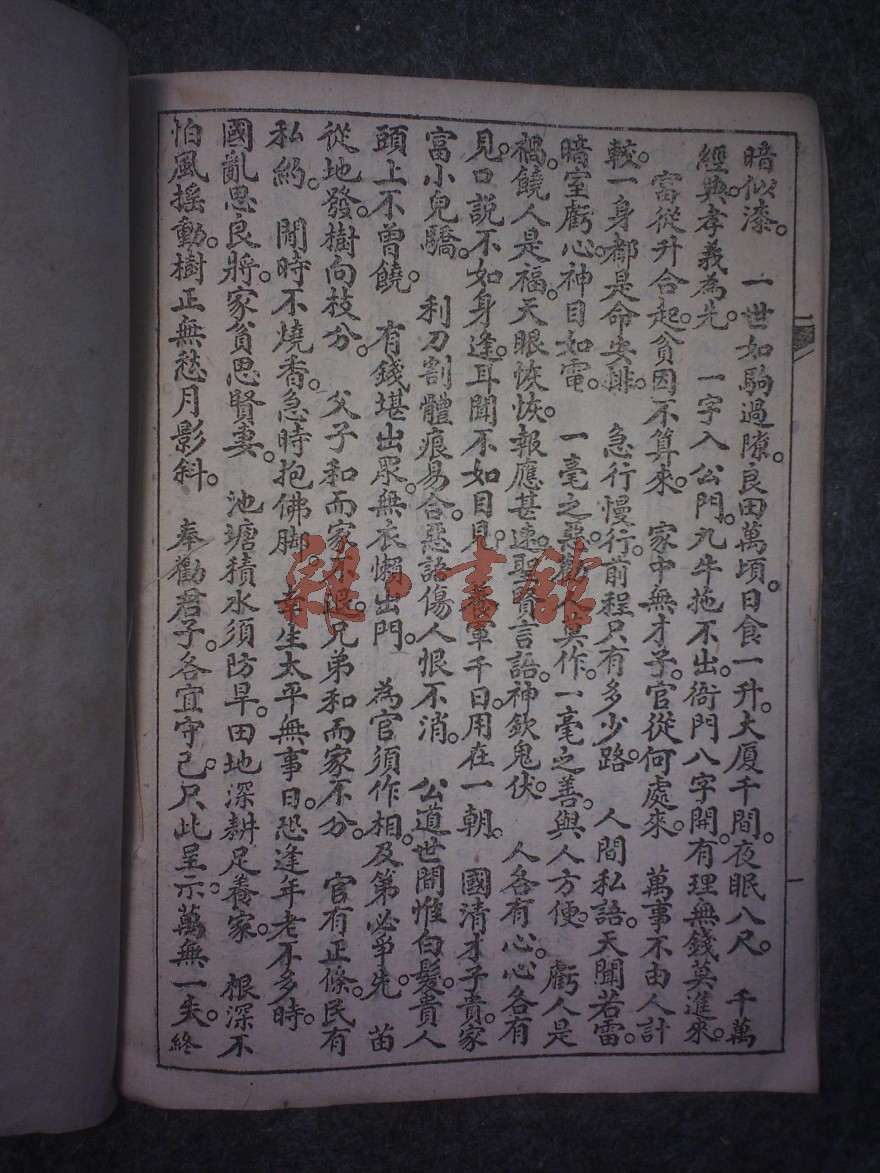 暗似漆。 一世如駒過隙。良田萬頃。日食一升。大厦千間。夜眠八尺。 千萬
經典。孝義為先。 一字入公門。九牛拖不出。衙門八字開。有理無錢莫進來。
富從升合起。貧因不算來。 家中無才子。官從何處來。 萬事不由人計
較。一身都是命安排。 急行慢行。前程只有多少路。 人間私語。天聞若雷。
暗室虧心。神目如電。 一毫之惡。勸人莫作。一毫之善。與人方便。 虧人是
禍。饒人是福。天眼恢恢。報應甚速。聖賢言語。神欽鬼伏。 人各有心。心各有
見。口說不如身逢。耳聞不如目見。 養軍千日。用在一朝。 國清才子貴。家
富小兒驕。 利刀割體痕易合。惡語傷人恨不消。 公道世間惟白髮。貴人
頭上不曾饒。 有錢堪出眾。無衣懶出門。 為官須作相。及第必爭先。 苗
從地發。樹向枝分。 父子和而家不退。兄弟和而家不分。 官有正條。民有
私約。 閒時不燒香。急時抱佛脚。 幸生太平無事日。恐逢年老不多時。
國亂思良將。家貧思賢妻。 池塘積水須防旱。田地深耕足養家。 根深不
怕風搖動。樹正無愁月影斜。 奉勸君子。各宜守己。只此呈示。萬無一失。終
雜·書館